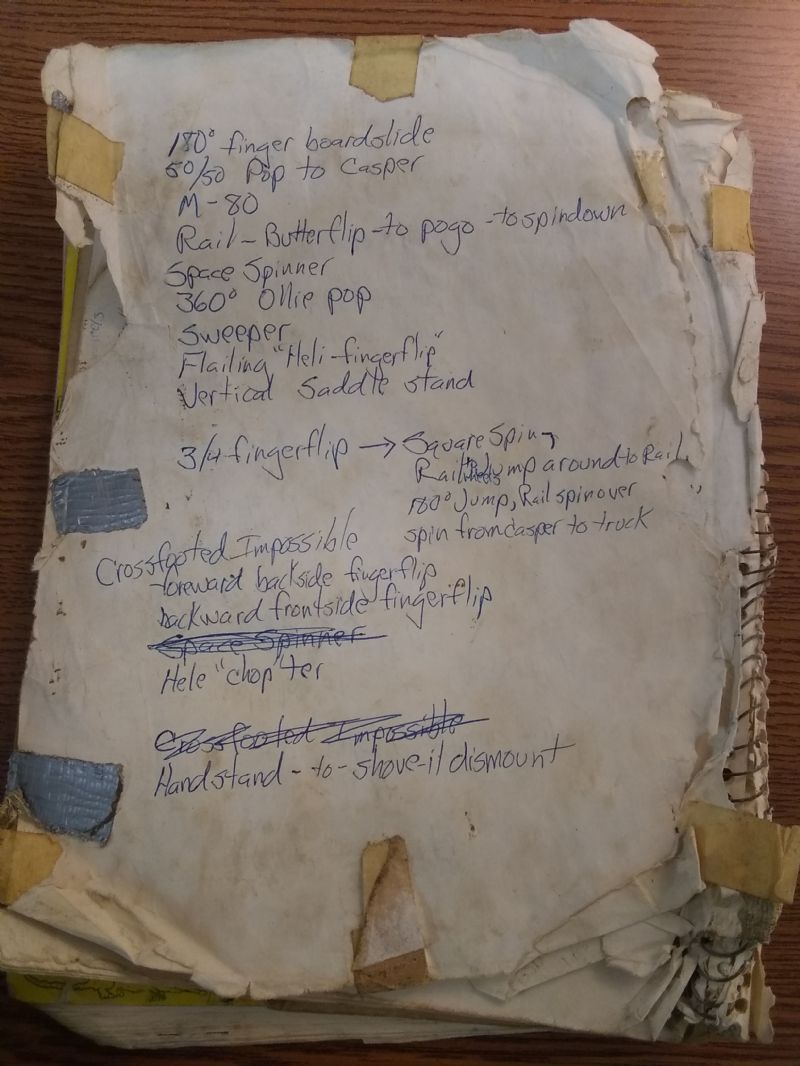 180° finger boardslide
50/50 Pop to Casper
M-80
Rail - Butterflip - to pogo - to spindown
Space Spinner
360° Ollie pop
Sweeper
Flailing "Heli-fingerflip"
Vertical Saddle stand
3/4 fingerflip → Square Spin
Rail Jump around to Rail,
180° Jump, Rail spinover
spin from casper to truck
Crossfooted Impossible
foreward backside fingerflip
backward frontside fingerflip
Space Spinner
Hele "chop" ter
Crossfooted Impossible
Handstand - to - shove-it dismount